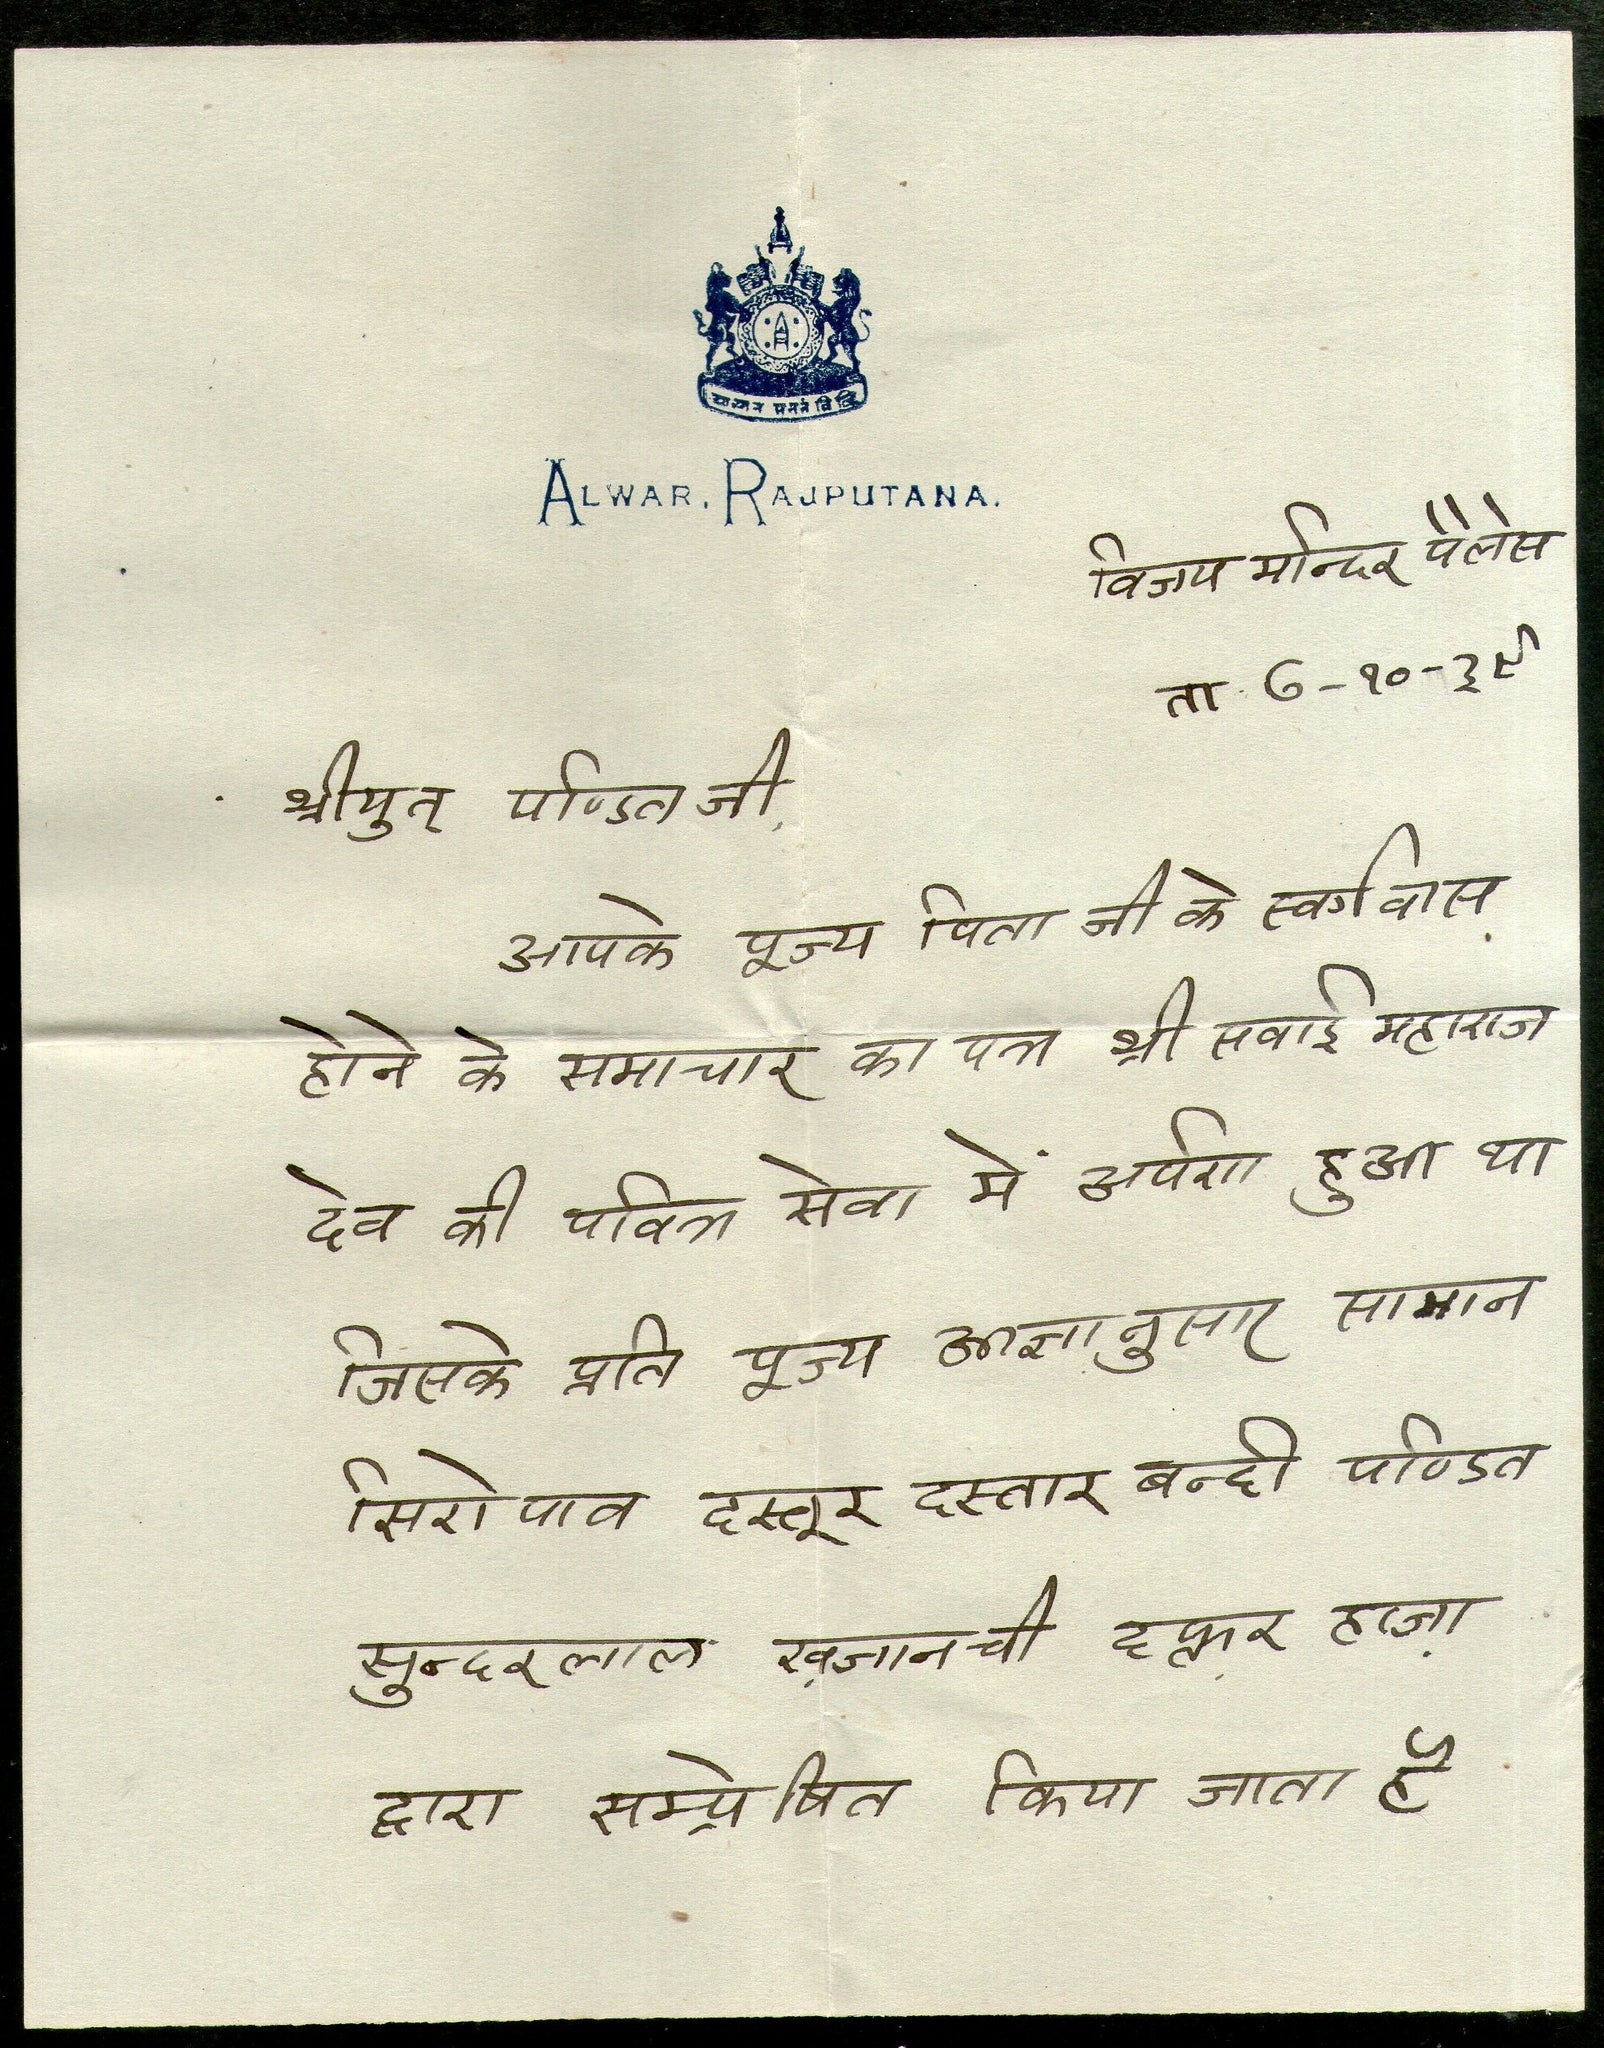 ALWAR, RAJPUTANA.
विजय मन्दिर पैलेस
ता. ७-१०-३९
श्रीयुत् पण्डित जी,
आपके पूज्य पिता जी के स्वर्गवास
होने के समाचार का पत्र श्री सवाई महाराज
देव की पवित्र सेवा में अर्पण हुआ था
जिसके प्रति पूज्य आज्ञानुसार सामान
सिरोपाव दस्तूर दस्तार बन्दी पण्डित
सुन्दरलाल ख़जानची दफ़्तर हाज़ा
द्वारा सम्प्रेषित किया जाता है